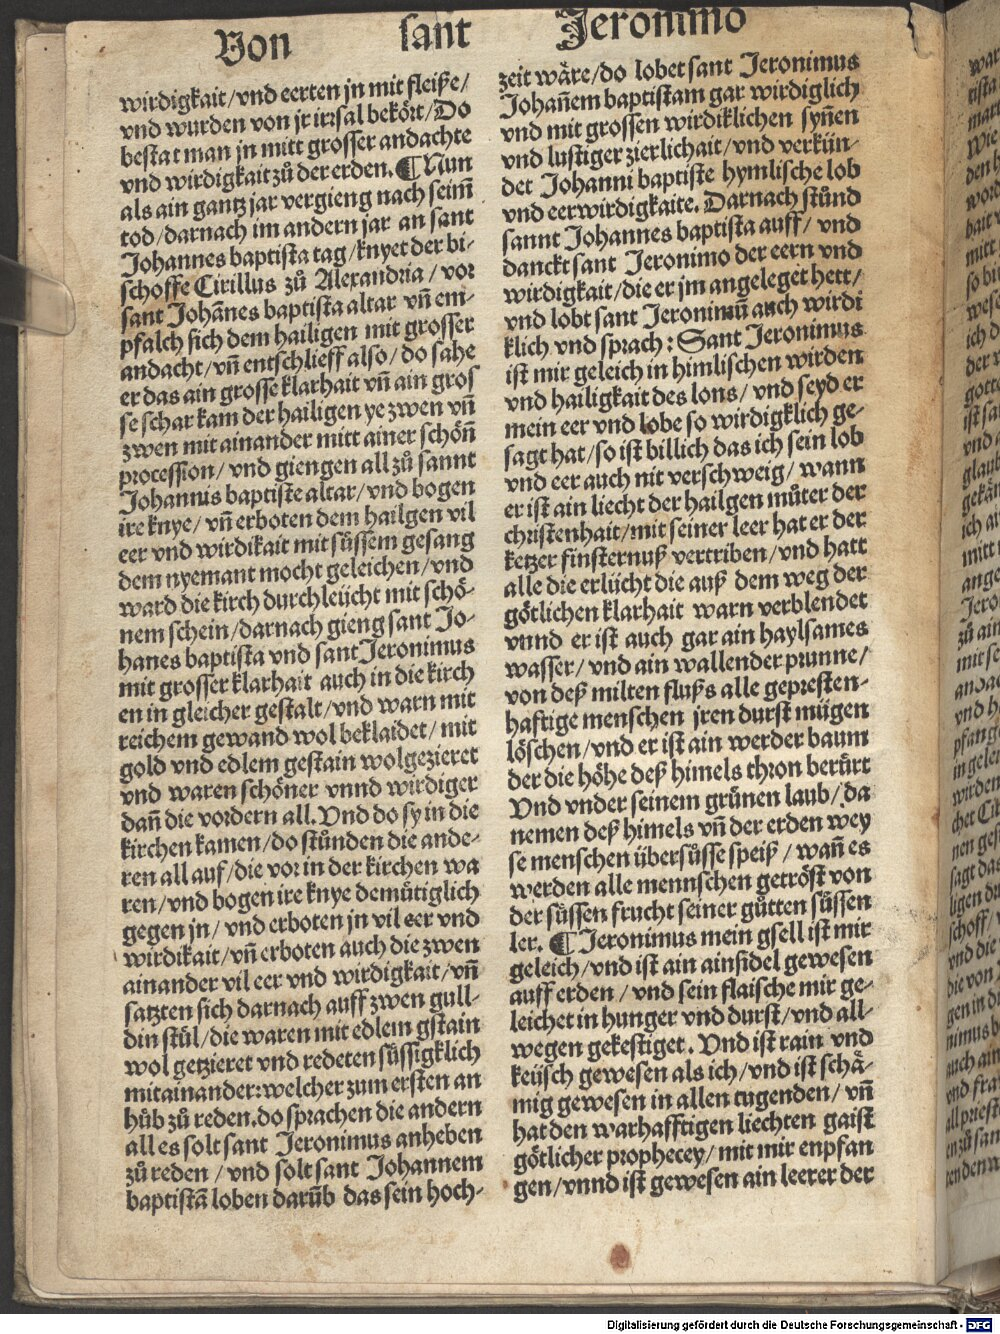 Von sant Jeronimo
wirdigkait/vnd eerten jn mit fleiße/
vnd wurden von jr irꝛsal bekoͤrt/Do
bestat man jn mitt grosser andachte
vnd wirdigkait zuͦ der erden. ¶Nun
als ain gantz jar vergieng nach seim̄
tod/darnach im andern jar an sant
Johannes baptista tag/knyet der bi-
schoffe Cirillus zuͦ Alexandria/voꝛ
sant Johānes baptista altar vn̄ em-
pfalch sich dem hailigen mit grosser
andacht/vn̄ entschlieff also/do sahe
er das ain grosse klarhait vn̄ ain gros
se schar kam der hailigen ye zwen vn̄
zwen mit ainander mitt ainer schoͤn̄
procession/vnd giengen all zuͦ sannt
Johannus baptiste altar/vnd bogen
ire knye/vn̄ erboten dem hailgen vil
eer vnd wirdikait mit suͤssem gesang
dem nyemant mocht geleichen/vnd
ward die kirch durchleücht mit schoͤ-
nem schein/darnach gieng sant Jo-
hanes baptista vnd sant Jeronimus
mit grosser klarhait auch in die kirch
en in gleicher gestalt/vnd warn mit
reichem gewand wol beklaidet/mit
gold vnd edlem gestain wolgezieret
vnd waren schoͤner vnnd wirdiger
dan̄ die voꝛdern all. Vnd do sy in die
kirchen kamen/do stuͦnden die ande-
ren all auf/die voꝛ in der kirchen wa
ren/vnd bogen ire knye demuͤtiglich
gegen jn/vnd erboten jn vil eer vnd
wirdikait/vn̄ erboten auch die zwen
ainander vil eer vnd wirdigkait/vn̄
satzten sich darnach auff zwen gull-
din stuͤl/die waren mit edlem gstain
wol getzieret vnd redeten suͤssigklich
mitainander:welcher zum ersten an
huͤb zuͦ reden.do sprachen die andern
all es solt sant Jeronimus anheben
zuͦ reden/vnd solt sant Johannem
baptistā loben darūb das sein hoch-
zeit waͤre/do lobet sant Jeronimus
Johan̄em baptistam gar wirdiglich
vnd mit grossen wirdiklichen syn̄en
vnd lustiger zierlichait/vnd verkün-
det Johanni baptiste hymlische lob
vnd eerwirdigkaite. Darnach stuͦnd
sannt Johannes baptista auff/vnd
danckt sant Jeronimo der eern vnd
wirdigkait/die er jm angeleget hett/
vnd lobt sant Jeronimū auch wirdi
klich vnd sprach: Sant Jeronimus
ist mir geleich in himlischen wirden
vnd hailigkait des lons/vnd seyd er
mein eer vnd lobe so wirdigklich ge-
sagt hat/so ist billich das ich sein lob
vnd eer auch nit verschweig/wann
er ist ain liecht der hailgen muͦter der
christenhait/mit seiner leer hat er der
ketzer finsternuß vertriben/vnd hatt
alle die erlücht die auß dem weg der
goͤtlichen klarhait warn verblendet
vnnd er ist auch gar ain haylsames
wasser/vnd ain wallender prunne/
von deß milten flußs alle gepresten-
haftige menschen jren durst mügen
loͤschen/vnd er ist ain werder baum
der die hoͤhe deß himels thron beruͤrt
Vnd vnder seinem gruͤnen laub/da
nemen deß himels vn̄ der erden wey
se menschen übersuͤsse speiß/wan̄ es
werden alle mennschen getroͤst von
der suͤssen frucht seiner guͤtten suͤssen
ler. ¶Jeronimus mein gsell ist mir
geleich/vnd ist ain ainsidel gewesen
auff erden/vnd sein flaische mir ge-
leichet in hunger vnd durst/vnd all-
wegen gekestiget. Vnd ist rain vnd
keüsch gewesen als ich/vnd ist schaͤ-
mig gewesen in allen tugenden/vn̄
hat den warhafftigen liechten gaist
goͤtlicher prophecey/mit mir enpfan
gen/vnnd ist gewesen ain leerer der
Digitalisierung gefördert durch die Deutsche Forschungsgemeinschaft - DFG